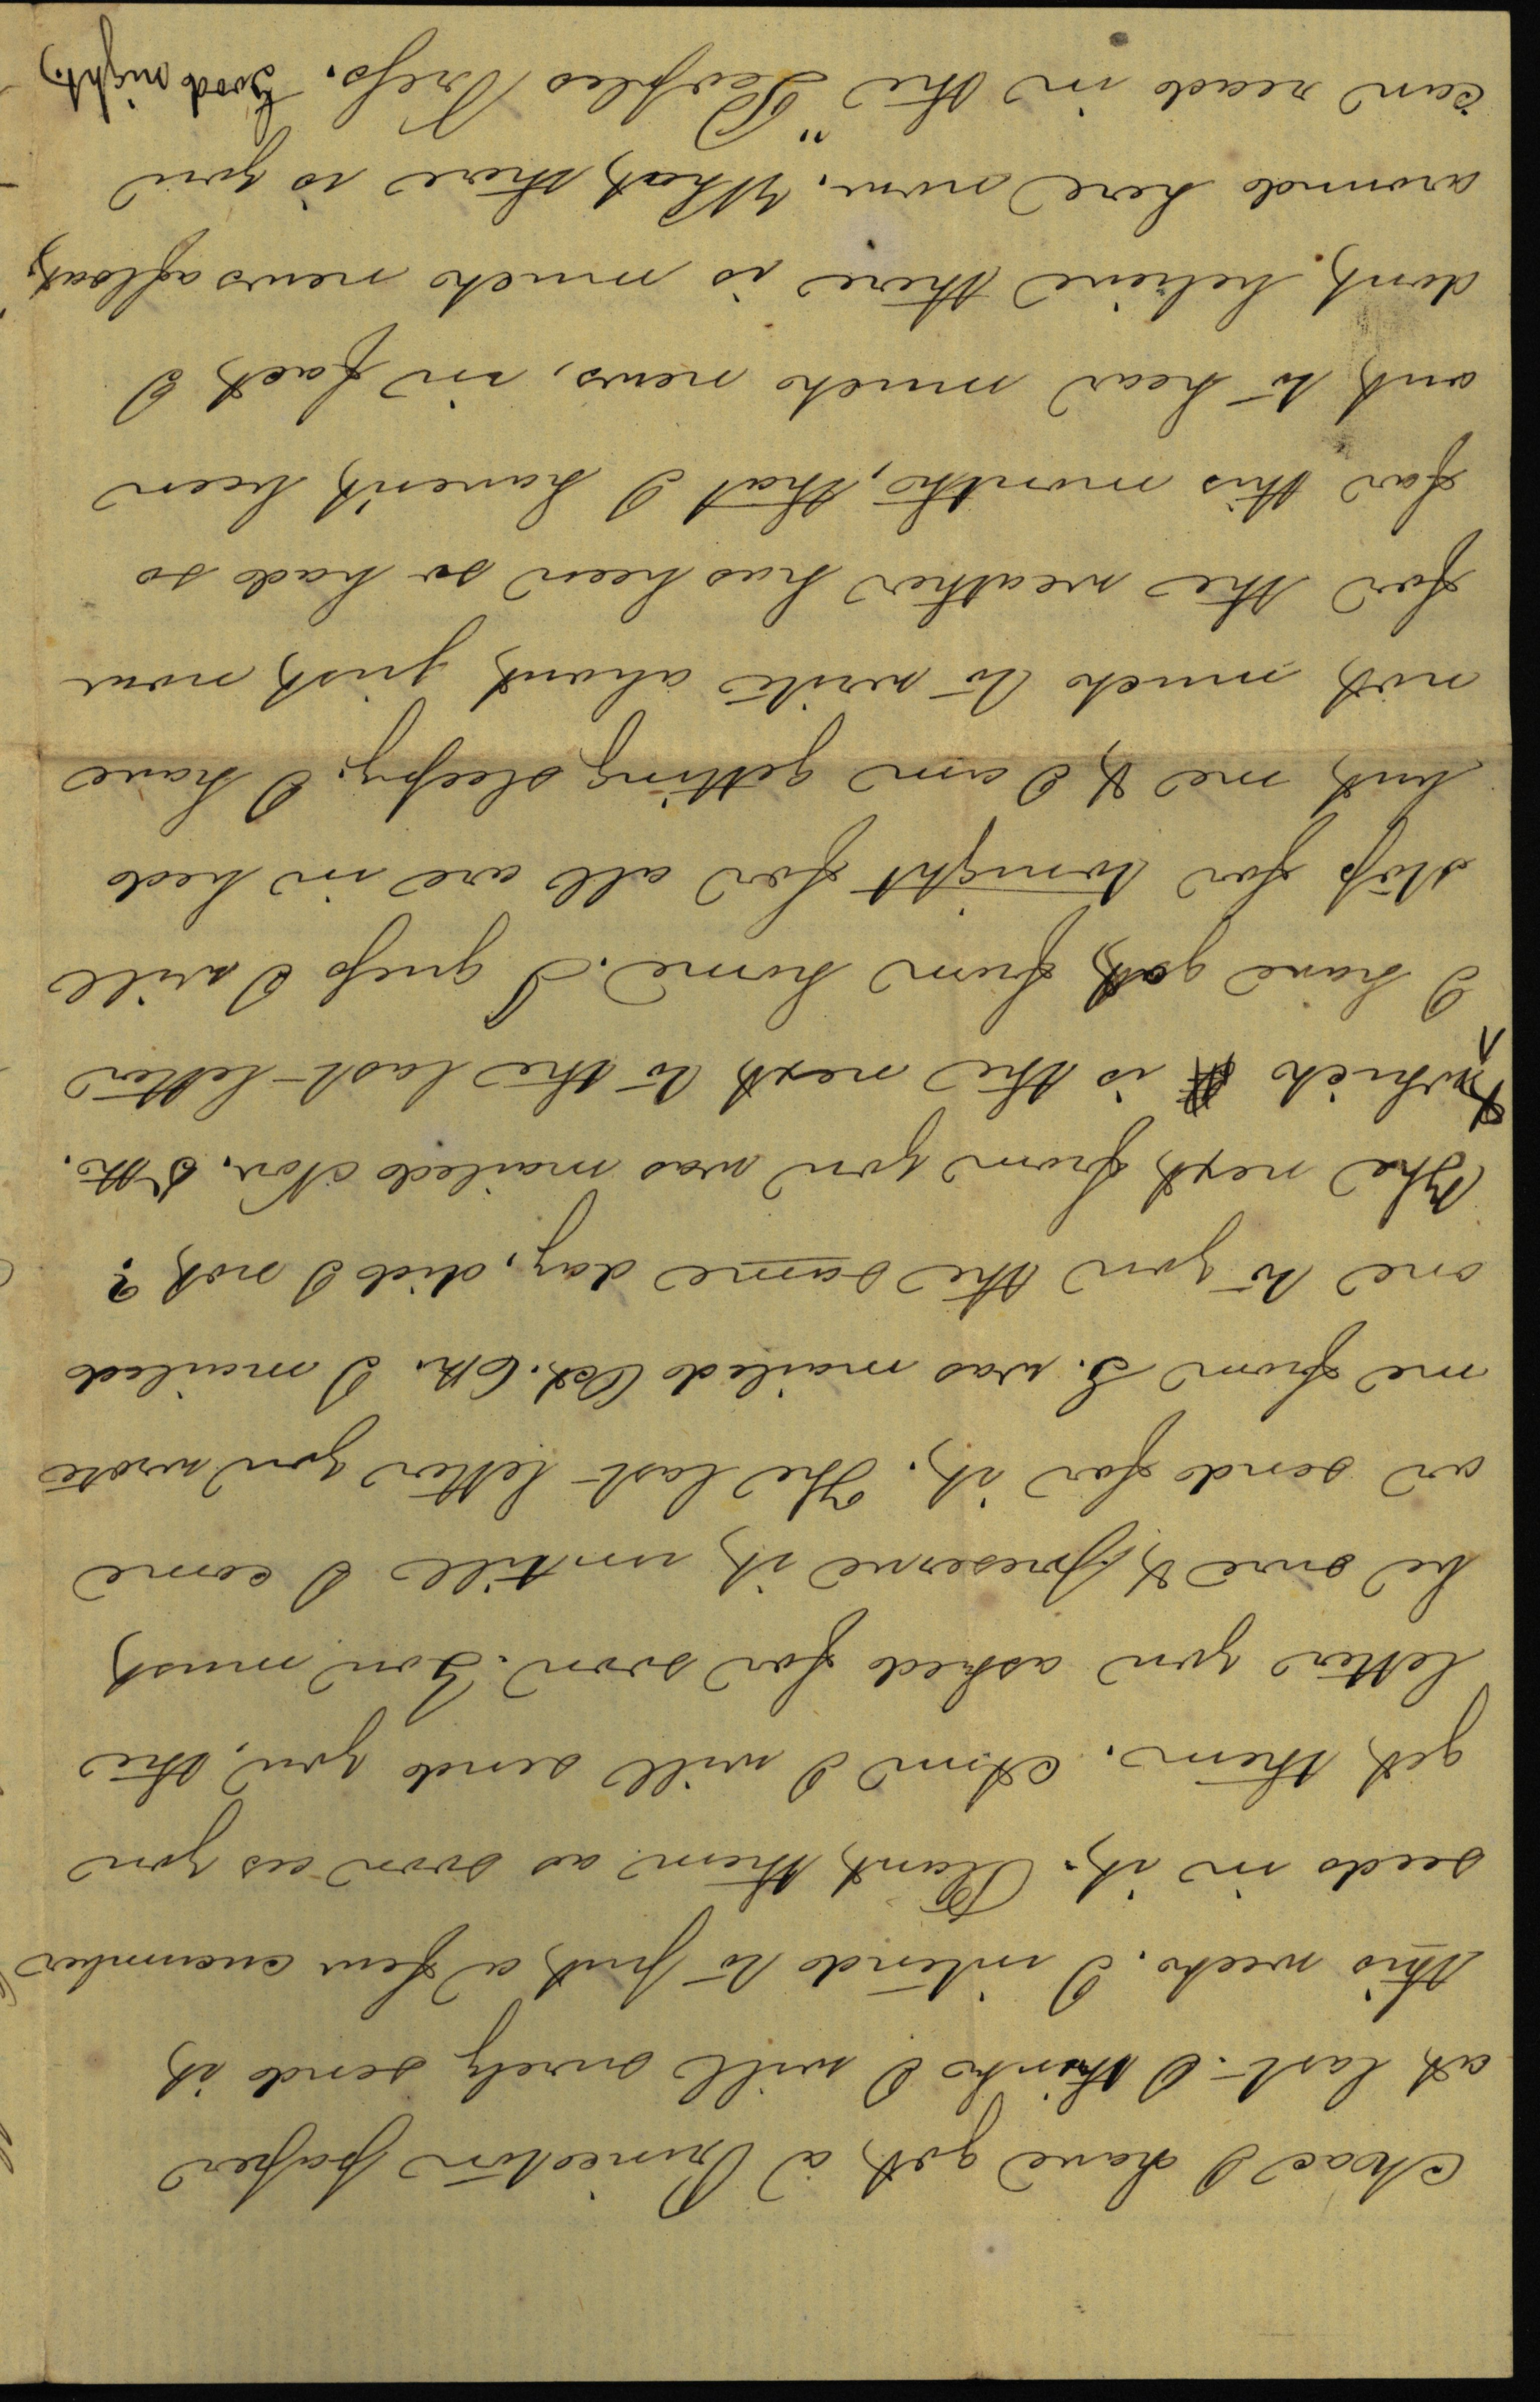 I have got a Princeton paper
at last. I think I will surely send it
this week. I intend to put a few cucumber
seeds in it. Plant them as soon as you
get them. And I will send you, the
letter you asked for soon. You must
be sure & preserve it untill I come
or send for it. The last letter you wrote
me from S. was mailed Oct. 6th. I mailed
one to you the same day, did I not?
The next from you was mailed Nov. 5th.
& which is the next to the last letter
I have got from home. I guess I will
stop for tonight for all are in bed
but me & I am getting sleepy. I have
not much to write about just now
for the weather has been so bad so
far this month, that I havent been
out to hear much news, in fact I
dont believe there is much news afloat,
around here now. What there is you
can read in the "Peoples Press. Good night.